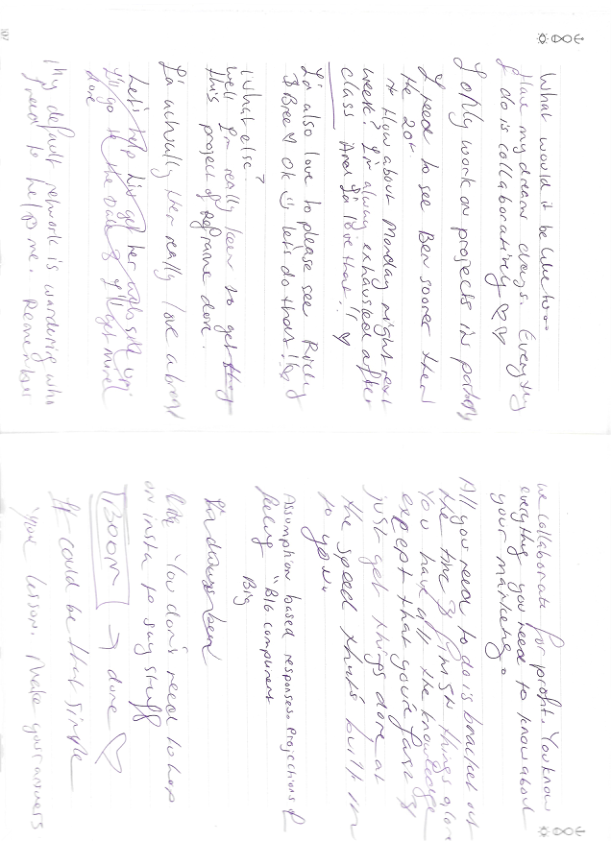 What would it be like to...
Have my dream days. Everything
I do is collaborating ♡♡
I only work on projects in
I need to see Ben sooner then
the 20th
→ How about Monday night next
week? I'm always exhausted after
class And I'd love that!! ♡
I'd also love to please see Ricky
& Bree ♡ OK let's do that!
What else?
Well I'm really keen to get
this project of done.
I'd actually then really love a
Let's help get her
I'll go to the
done
My default network is wandering who
I need to help me. Remember
We collaborate for profit. You know
everything you need to know about
your marketing.
All you need to do is bracket out
the time & finish things alone
You have all the knowledge
except that you're fast &
just get things done at
the speed that's built in
to you.
Assumption based responses projections of
feeling "BIG component
Big
like You don't need to hop
on insta to say stuff
BOOM → done ♡
It could be that simple
Your lesson. Make your answers